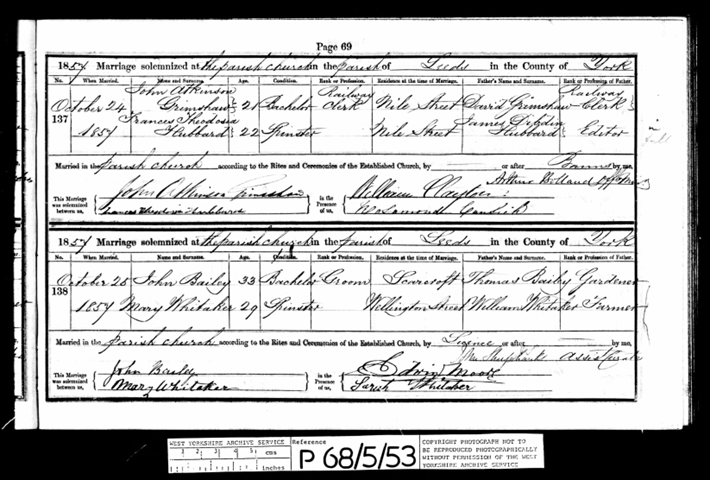 Page 69
1857 Marriage solemnized at the parish church in the parish of Leeds in the County of York
No. When Married. Name and Surname. Age. Condition. Rank or Profession. Residence at the time of Marriage. Father's Name and Surname. Rank or Profession of Father.
137 October 24 1857 John Atkinson Grimshaw 21 Bachelor Railway Clerk Mile Street David Grimshaw Railway Clerk
Frances Theodosia Hubbard 22 Spinster Mile Street James Hubbard Editor
in full
Married in the parish church according to the Rites and Ceremonies of the Established Church, by or after Banns by me,
Arthur
This Marriage was solemnized between us, John Atkinson Grimshaw in the Presence of us, William
Frances Theodosia Hubbard
1857 Marriage solemnized at the parish church in the parish of Leeds in the County of York
No. When Married. Name and Surname. Age. Condition. Rank or Profession. Residence at the time of Marriage. Father's Name and Surname. Rank or Profession of Father.
138 October 25 John Bailey 33 Bachelor Groom Scarcroft Thomas Bailey Gardener
1857 Mary Whitaker 29 Spinster Wellington Street William Whitaker Farmer
Married in the parish church according to the Rites and Ceremonies of the Established Church, by Licence or after by me,
Assist Curate
This Marriage was solemnized between us, John Bailey in the Presence of us, Edwin Moore
Mary Whitaker Sarah Whitaker
WEST YORKSHIRE ARCHIVE SERVICE
1 2 3 4 5 cms
1 2 inches
Reference
P 68/5/53
COPYRIGHT PHOTOGRAPH NOT TO
BE REPRODUCED PHOTOGRAPHICALLY
WITHOUT PERMISSION OF THE WEST
YORKSHIRE ARCHIVE SERVICE